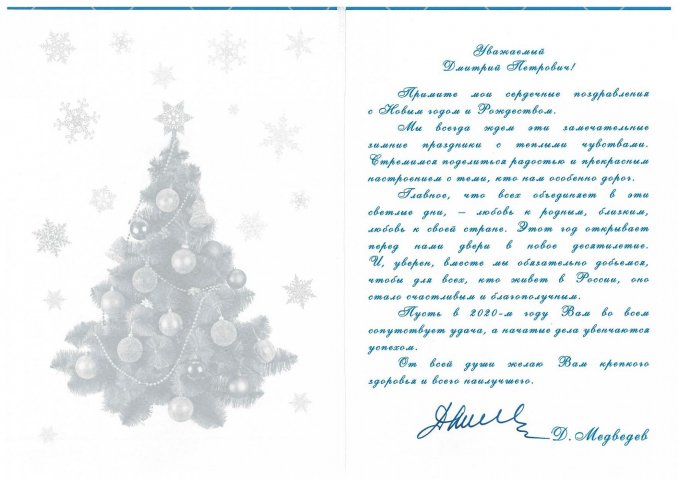 Уважаемый
Дмитрий Петрович!
Примите мои сердечные поздравления
с Новым годом и Рождеством.
Мы всегда ждем эти замечательные
зимние праздники с теплыми чувствами.
Стремимся поделиться радостью и прекрасным
настроением с теми, кто нам особенно дорог.
Главное, что всех объединяет в эти
светлые дни, – любовь к родным, близким,
любовь к своей стране. Этот год открывает
перед нами двери в новое десятилетие.
И, уверен, вместе мы обязательно добьемся,
чтобы для всех, кто живет в России, оно
стало счастливым и благополучным.
Пусть в 2020-м году Вам во всем
сопутствует удача, а начатые дела увенчаются
успехом.
От всей души желаю Вам крепкого
здоровья и всего наилучшего.
Д. Медведев